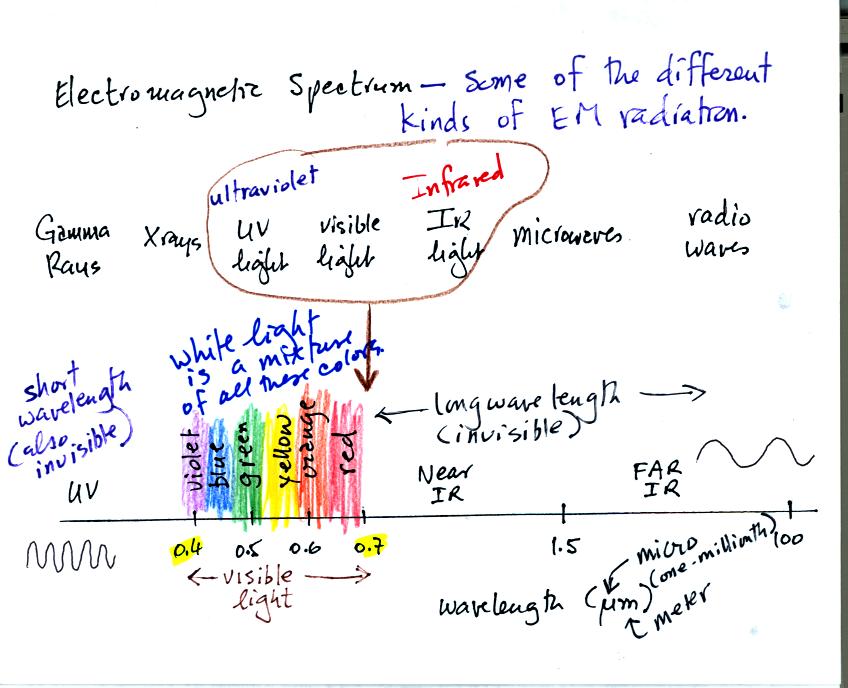 Electromagnetic Spectrum — Some of the different
kinds of EM radiation.
ultraviolet
Infrared
Gamma
Rays
Xrays
UV
light
visible
light
IR
light
microwaves
radio
waves
white light
is a mixture
of all these colors
short
wavelength
(also
invisible)
UV
violet
blue
green
yellow
orange
red
long wave length
(invisible)
Near
IR
FAR
IR
0.4
0.5
0.6
0.7
1.5
100
visible
light
micro
(one-millionth)
wavelength (μm)
meter